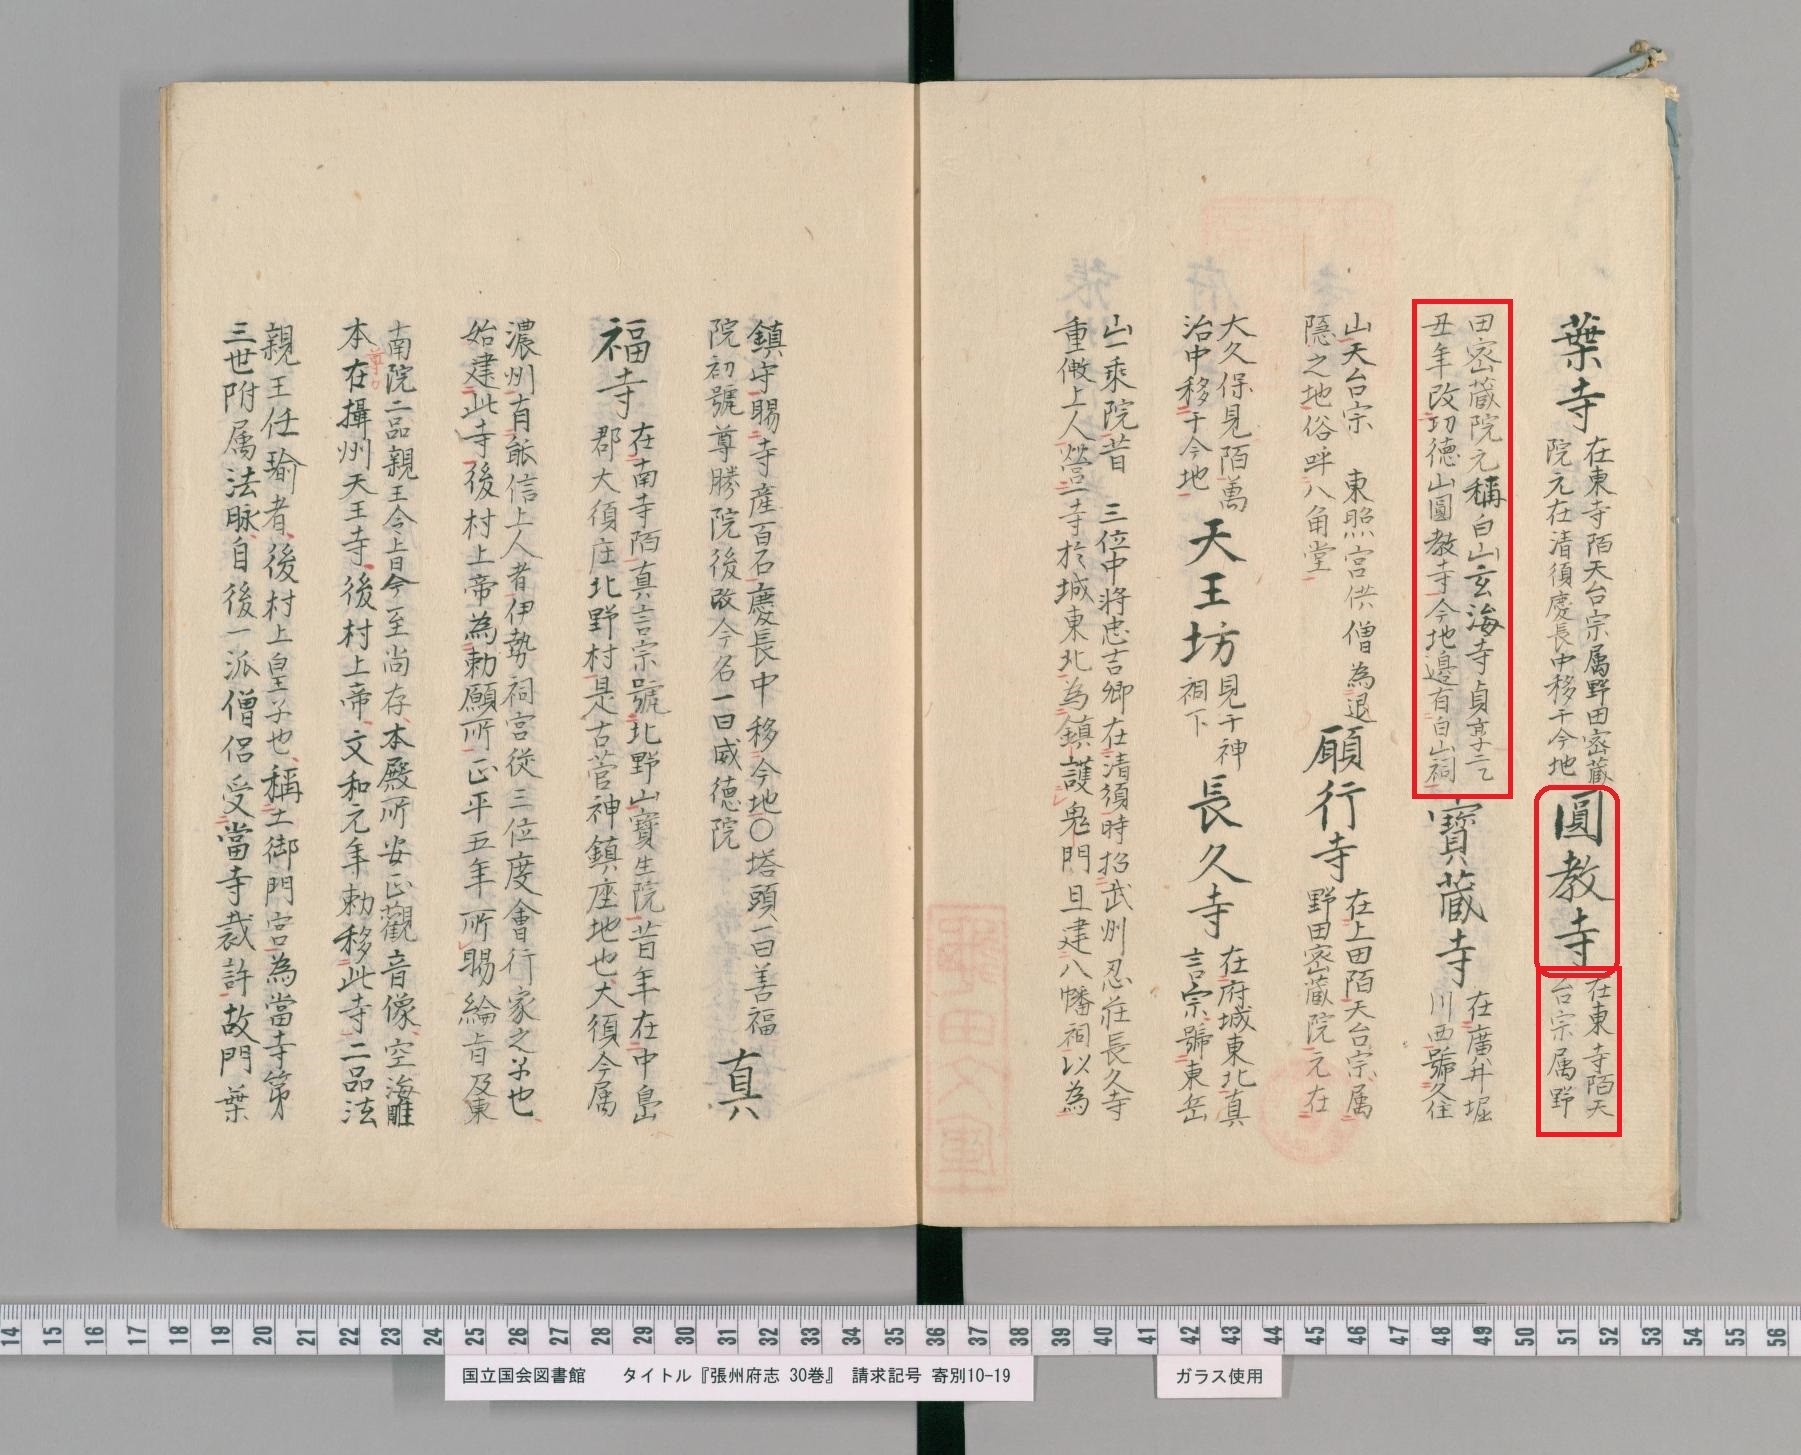 葉寺
在東寺陌天台宗属野田密蔵
院元在清須慶長中移于今地
圓教寺
在東寺陌天
台宗属野
田密蔵院元稱白山玄海寺貞享二乙
丑年改功徳山圓教寺今地邊有白山祠
寶蔵寺
在廣井堀
川西號久住
山天台宗 東照宮供僧為退
隱之地俗呼八角堂
願行寺
在上田陌天台宗属
野田密蔵院元在
大久保見陌萬
治中移于今地
天王坊
見于神
祠下
長久寺
在府城東北真
言宗號東岳
山一乘院昔 三位中將忠吉卿在清須時招武州忍荘長久寺
重倣上人營一寺於城東北為鎮護鬼門且建八幡祠以為
鎮守賜寺産百石慶長中移今地〇塔頭一曰善福
院初號尊勝院後改今名一曰威德院
真
福寺
在南寺陌真言宗號北野山寶生院昔年在中島
郡大須庄北野村是古菅神鎮座地也大須今属
濃州有能信上人者伊勢祠官從三位度會行家之子也
始建此寺後村上帝為勅願所正平五年所賜綸旨及東
南院二品親王令旨今至尚存本殿所安正觀音像空海雕
本在攝州天王寺後村上帝文和元年勅移此寺二品法
親王任瑜者後村上皇子也稱土御門宮為當寺第
三世附属法脈自後一派僧侶受當寺裁許故門葉
14 15 16 17 18 19 20 21 22 23 24 25 26 27 28 29 30 31 32 33 34 35 36 37 38 39 40 41 42 43 44 45 46 47 48 49 50 51 52 53 54 55 56
国立国会図書館 タイトル『張州府志 30巻』 請求記号 寄別10-19
ガラス使用